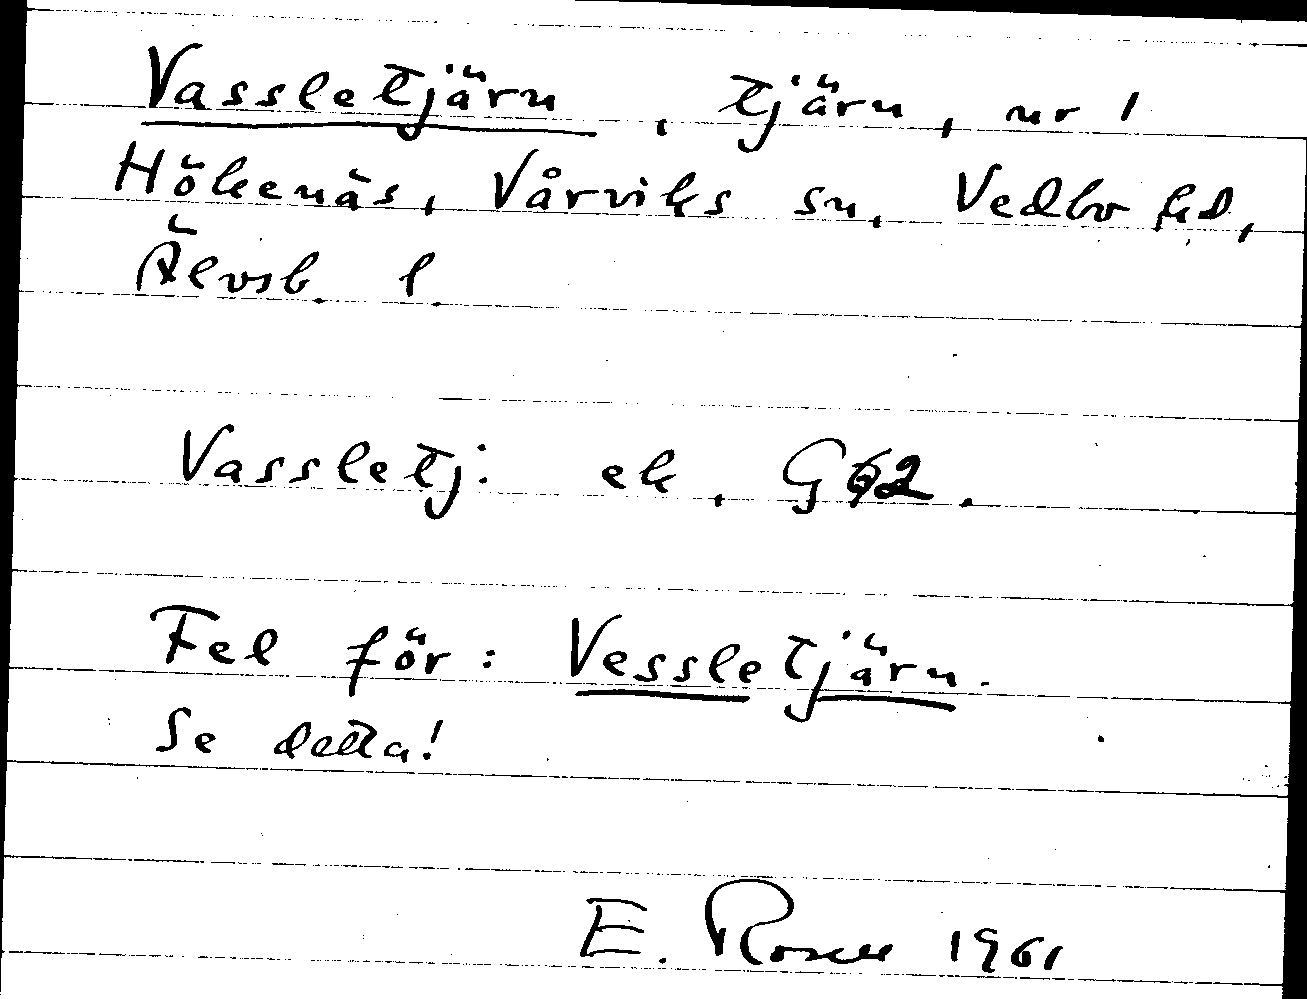 Vassletjärn, tjärn, nr 1
Hökenäs, Vårviks sn, Vedbo hd,
Älvsb. l.
Vassletj: ek. G62.
Fel för: Vessletjärn.
Se detta!
E. Rosell 1961